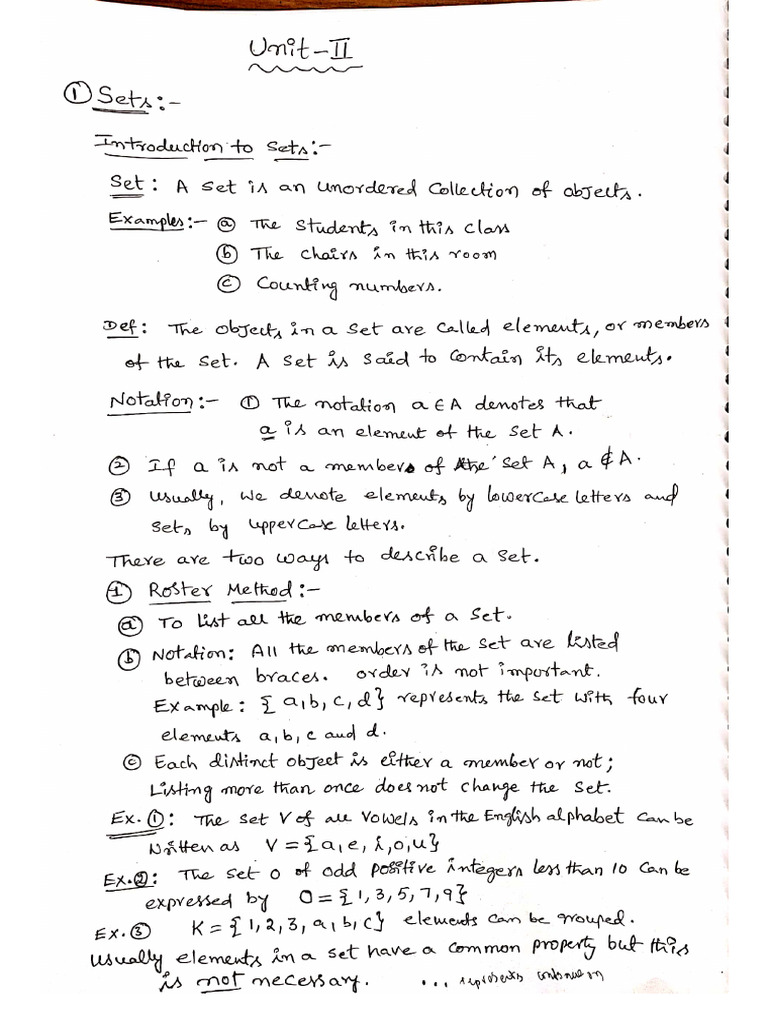 Unit-II
① Sets:-
Introduction to Sets:-
Set: A set is an unordered collection of objects.
Examples:- ⓐ The students in this class
ⓑ The chairs in this room
ⓒ Counting numbers.
Def: The objects in a set are called elements, or members
of the set. A set is said to contain its elements.
Notation:- ① The notation a ∈ A denotes that
a is an element of the set A.
② If a is not a members of the set A, a ∉ A.
③ Usually, we denote elements by lowercase letters and
sets by uppercase letters.
There are two ways to describe a set.
① Roster Method:-
ⓐ To list all the members of a set.
ⓑ Notation: All the members of the set are listed
between braces. order is not important.
Example: {a,b,c,d} represents the set with four
elements a,b,c and d.
ⓒ Each distinct object is either a member or not;
Listing more than once does not change the set.
Ex.①: The set V of all vowels in the English alphabet can be
written as V={a,e,i,o,u}
Ex.②: The set O of odd positive integers less than 10 can be
expressed by O={1,3,5,7,9}
Ex.③ K={1,2,3,a,b,c} elements can be grouped.
Usually elements in a set have a common property but this
is not necessary. ... represents